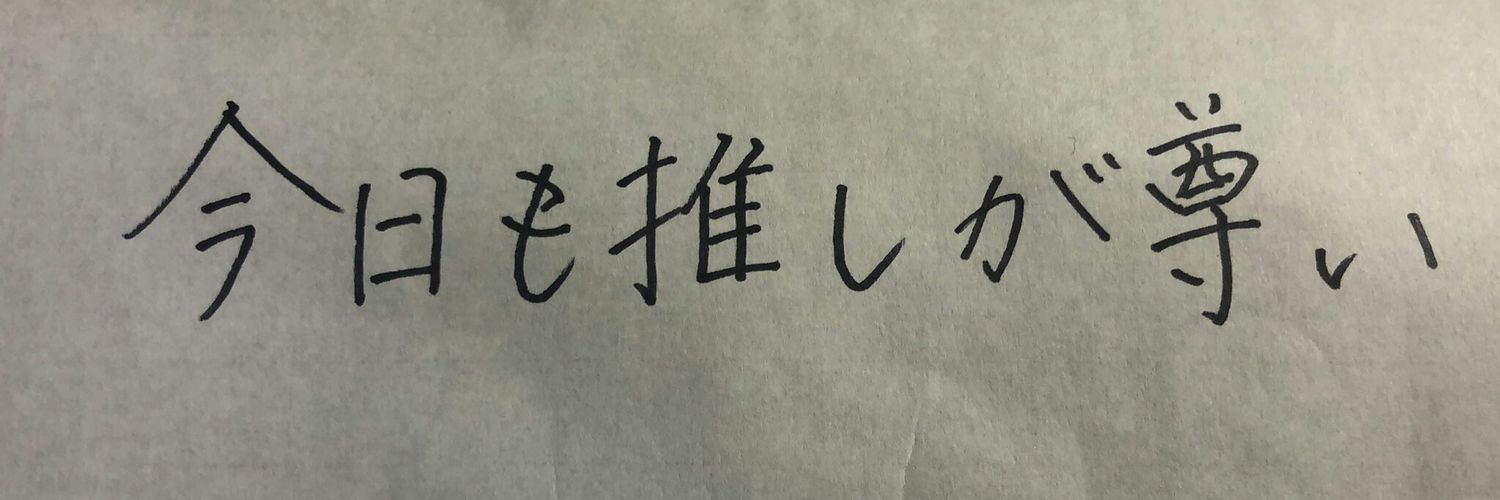 今日も推しが尊い